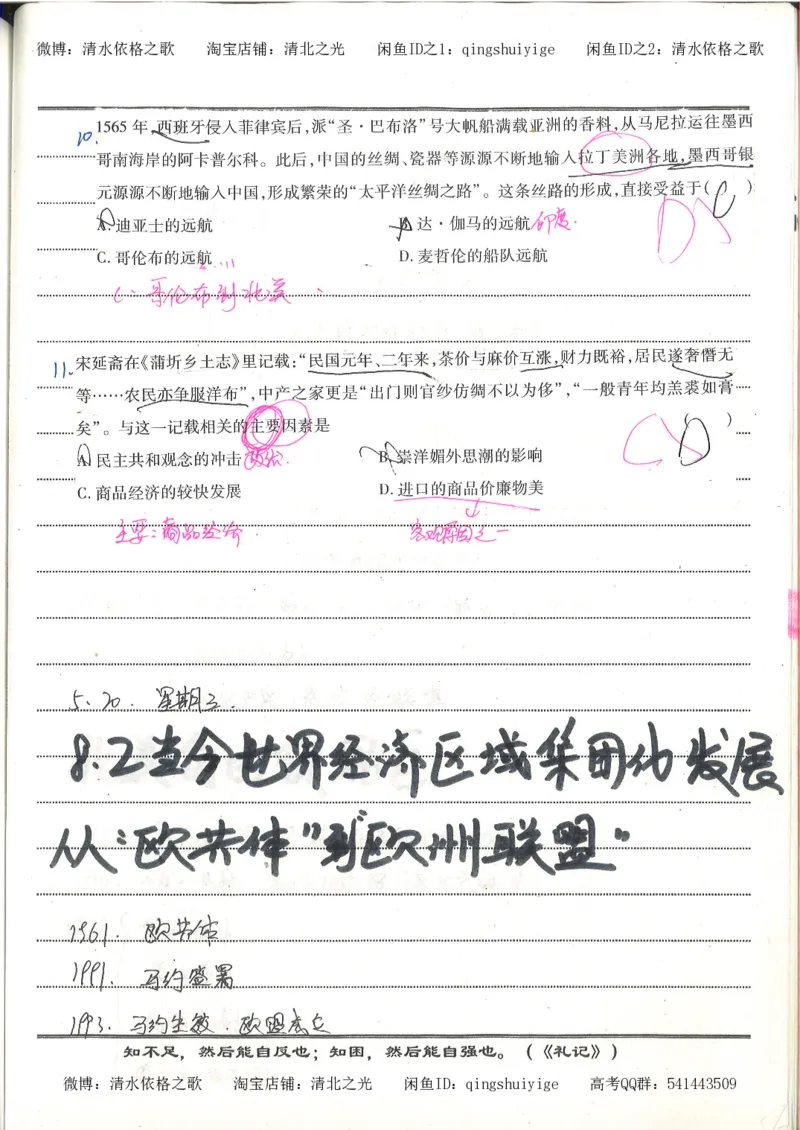 微博：清水依格之歌 淘宝店铺：清北之光 闲鱼ID之1：qingshuiyige 闲鱼ID之2：清水依格之歌
10. 1565 年，西班牙侵入菲律宾后，派“圣·巴布洛”号大帆船满载亚洲的香料，从马尼拉运往墨西
哥南海岸的阿卡普尔科。此后，中国的丝绸、瓷器等源源不断地输入拉丁美洲各地，墨西哥银
元源源不断地输入中国，形成繁荣的“太平洋丝绸之路”。这条丝路的形成，直接受益于( )
A. 迪亚士的远航 B. 达·伽马的远航 印度.
C. 哥伦布的远航 D. 麦哲伦的船队远航
C: 哥伦布到北美
11. 宋延斋在《蒲圻乡土志》里记载：“民国元年、二年来，茶价与麻价互涨，财力既裕，居民遂奢僭无
等……农民亦争服洋布”，中产之家更是“出门则官纱仿绸不以为侈”，“一般青年均羔裘如膏
矣”。与这一记载相关的主要因素是 ( )
A. 民主共和观念的冲击 政治. B. 崇洋媚外思潮的影响
C. 商品经济的较快发展 D. 进口的商品价廉物美
主要：商品经济 客观原因之一
5.20. 星期三.
8.2当今世界经济区域集团化发展
从“欧共体”到“欧洲联盟”
1961. 欧共体
1991. 马约签署
1993. 马约生效. 欧盟成立
知不足，然后能自反也；知困，然后能自强也。（《礼记》）
微博：清水依格之歌 淘宝店铺：清北之光 闲鱼ID：qingshuiyige 高考QQ群：541443509